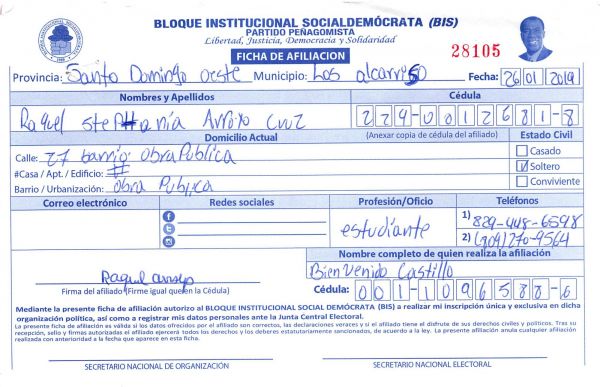 BLOQUE INSTITUCIONAL SOCIALDEMÓCRATA (BIS)
PARTIDO PEÑAGOMISTA
Libertad, Justicia, Democracia y Solidaridad
FICHA DE AFILIACION
28105
Provincia: Santo Domingo oeste Municipio: Los alcarriso Fecha: 26 01 2019
Nombres y Apellidos Cédula
Raquel Stephania Arroyo Cruz 229-0012681-8
Domicilio Actual (Anexar copia de cédula del afiliado) Estado Civil
Calle: 27 barrio obra Publica
#Casa / Apt. / Edificio: #
Barrio / Urbanización: obra Publica
Casado
Soltero
Conviviente
Correo electrónico Redes sociales Profesión/Oficio Teléfonos
estudiante
1) 829-448-6598
2) (909) 270-9564
Nombre completo de quien realiza la afiliación
Bienvenido Castillo
Raquel arroyo
Firma del afiliado (Firme igual que en la Cédula) Cédula: 001-1096588-6
Mediante la presente ficha de afiliación autorizo al BLOQUE INSTITUCIONAL SOCIAL DEMÓCRATA (BIS) a realizar mi inscripción única y exclusiva en dicha
organización política, así como a registrar mis datos personales ante la Junta Central Electoral.
La presente ficha de afiliación es válida si los datos ofrecidos por el afiliado son correctos, las declaraciones veraces y si el afiliado tiene el disfrute de sus derechos civiles y políticos. Tras su
recepción, sello y firmas autorizadas el afiliado ejercen todos los derechos y los deberes estatutariamente sancionados, de acuerdo a la ley. La presente afiliación anula cualquier afiliación
realizada con anterioridad a la fecha que aparece en esta ficha.
SECRETARIO NACIONAL DE ORGANIZACIÓN SECRETARIO NACIONAL ELECTORAL